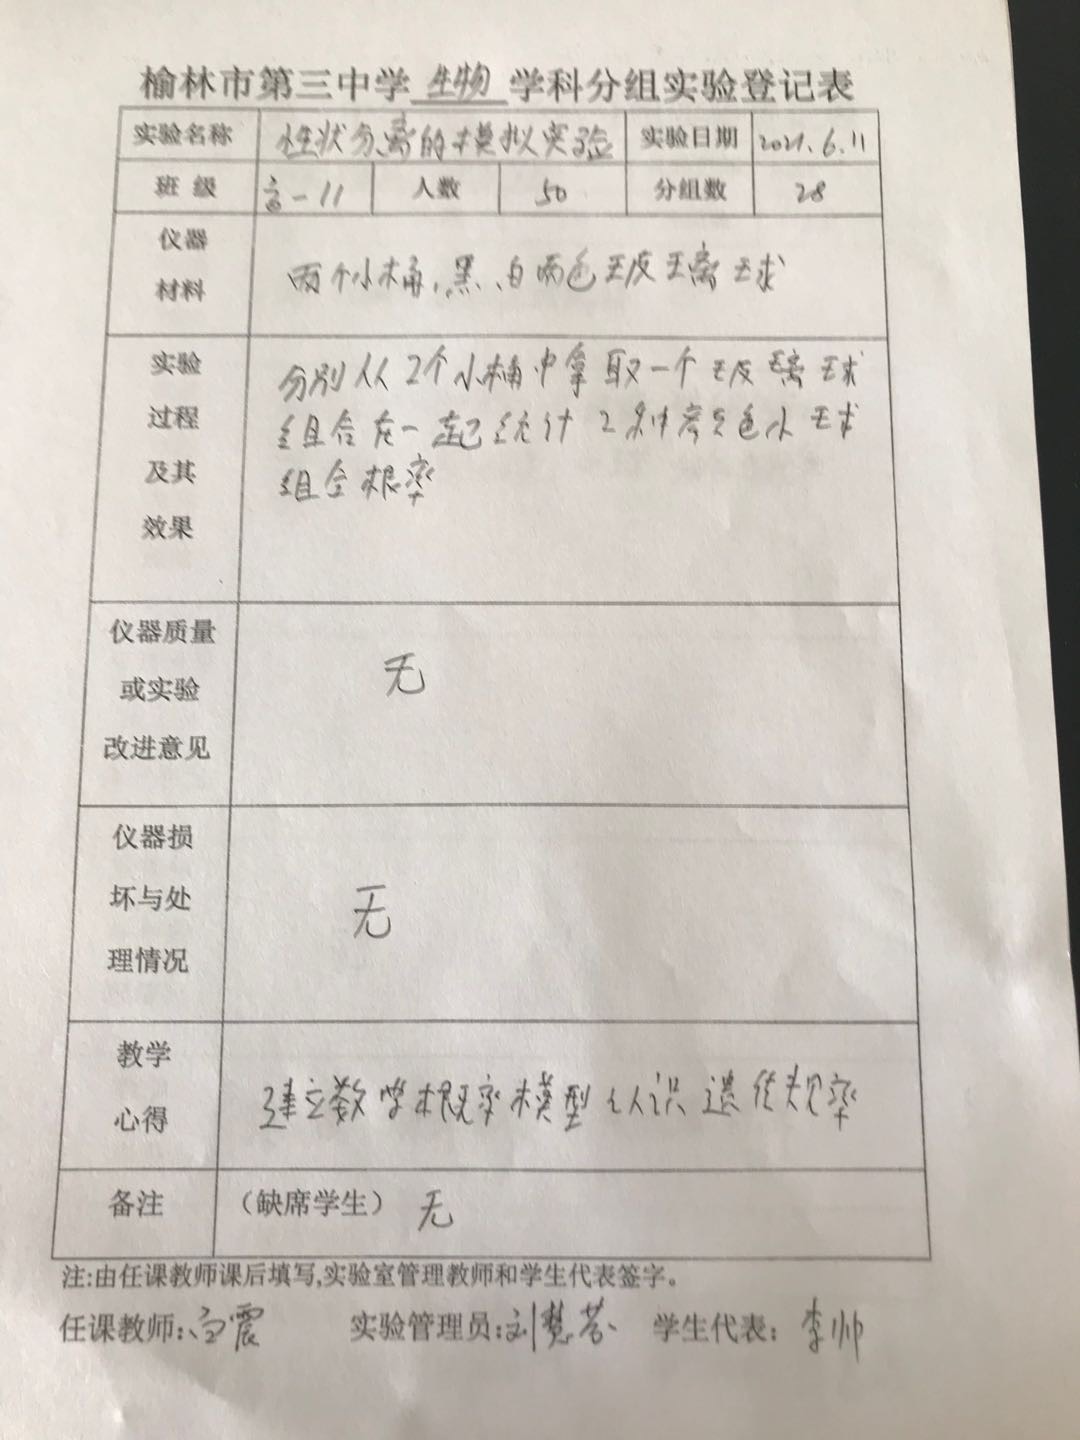 榆林市第三中学生物学科分组实验登记表
实验名称 性状分离的模拟实验 实验日期 2021.6.11
班级 高-11 人数 50 分组数 28
仪器材料 两个小桶,黑、白两色玻璃球
实验过程及其效果 分别从2个小桶中拿取一个玻璃球
组合在一起统计2种颜色小球
组合概率
仪器质量或实验改进意见 无
仪器损坏与处理情况 无
教学心得 建立数学概率模型认识遗传规率
备注 (缺席学生) 无
注:由任课教师课后填写,实验室管理教师和学生代表签字。
任课教师: 震 实验管理员:刘慧 学生代表:李帅